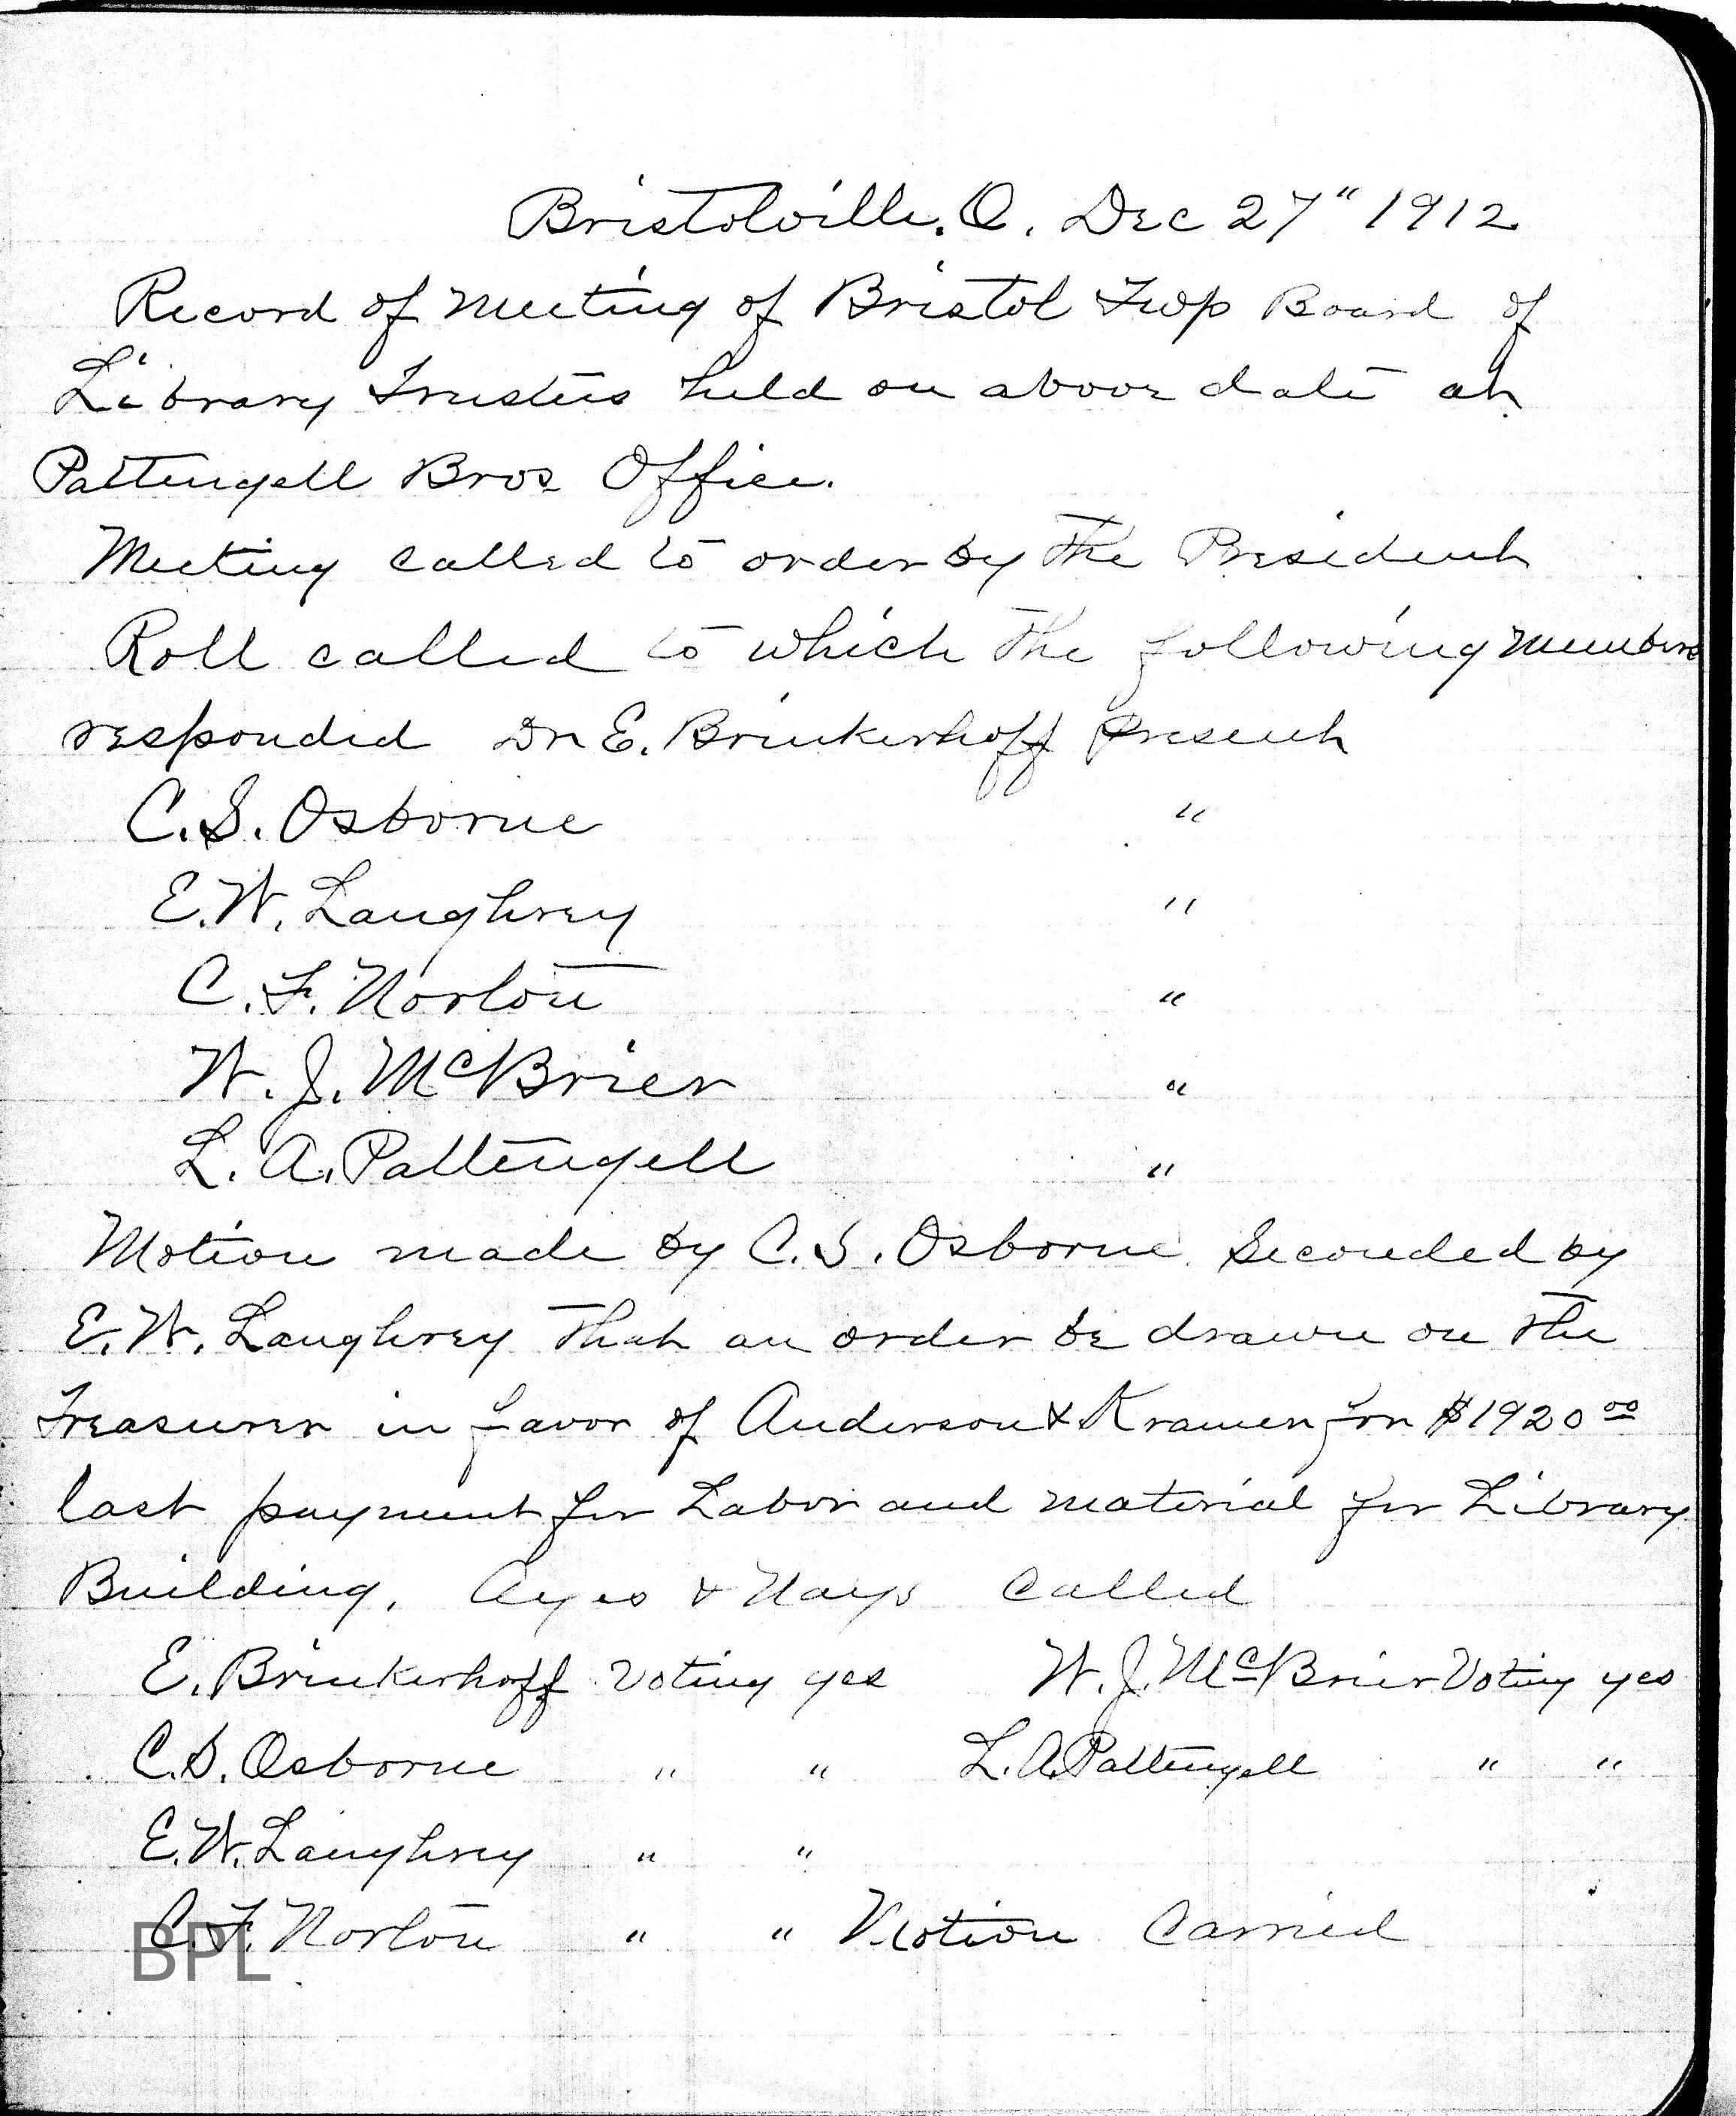 Bristolville. O. Dec 27" 1912
Record of Meeting of Bristol Twp Board of
Library Trustees held on above date at
Pattengell Bros Office.
Meeting called to order by the President
Roll called to which the following members
responded Dr E. Brinkerhoff Present
C. S. Osborne "
E. W. Laughrey "
C. F. Norton "
W. J. McBrier "
L. A. Pattengell "
Motion made by C. S. Osborne Seconded by
E. W. Laughrey that an order be drawn on the
Treasurer in favor of Anderson & Kramer for $1920 00
last payment for Labor and material for Library
Building. Ayes & Nays Called
E. Brinkerhoff Voting yes W. J. McBrier Voting yes
C. S. Osborne " " L. A. Pattengell " "
E. W. Laughrey " "
C. F. Norton " " Motion Carried
BPL